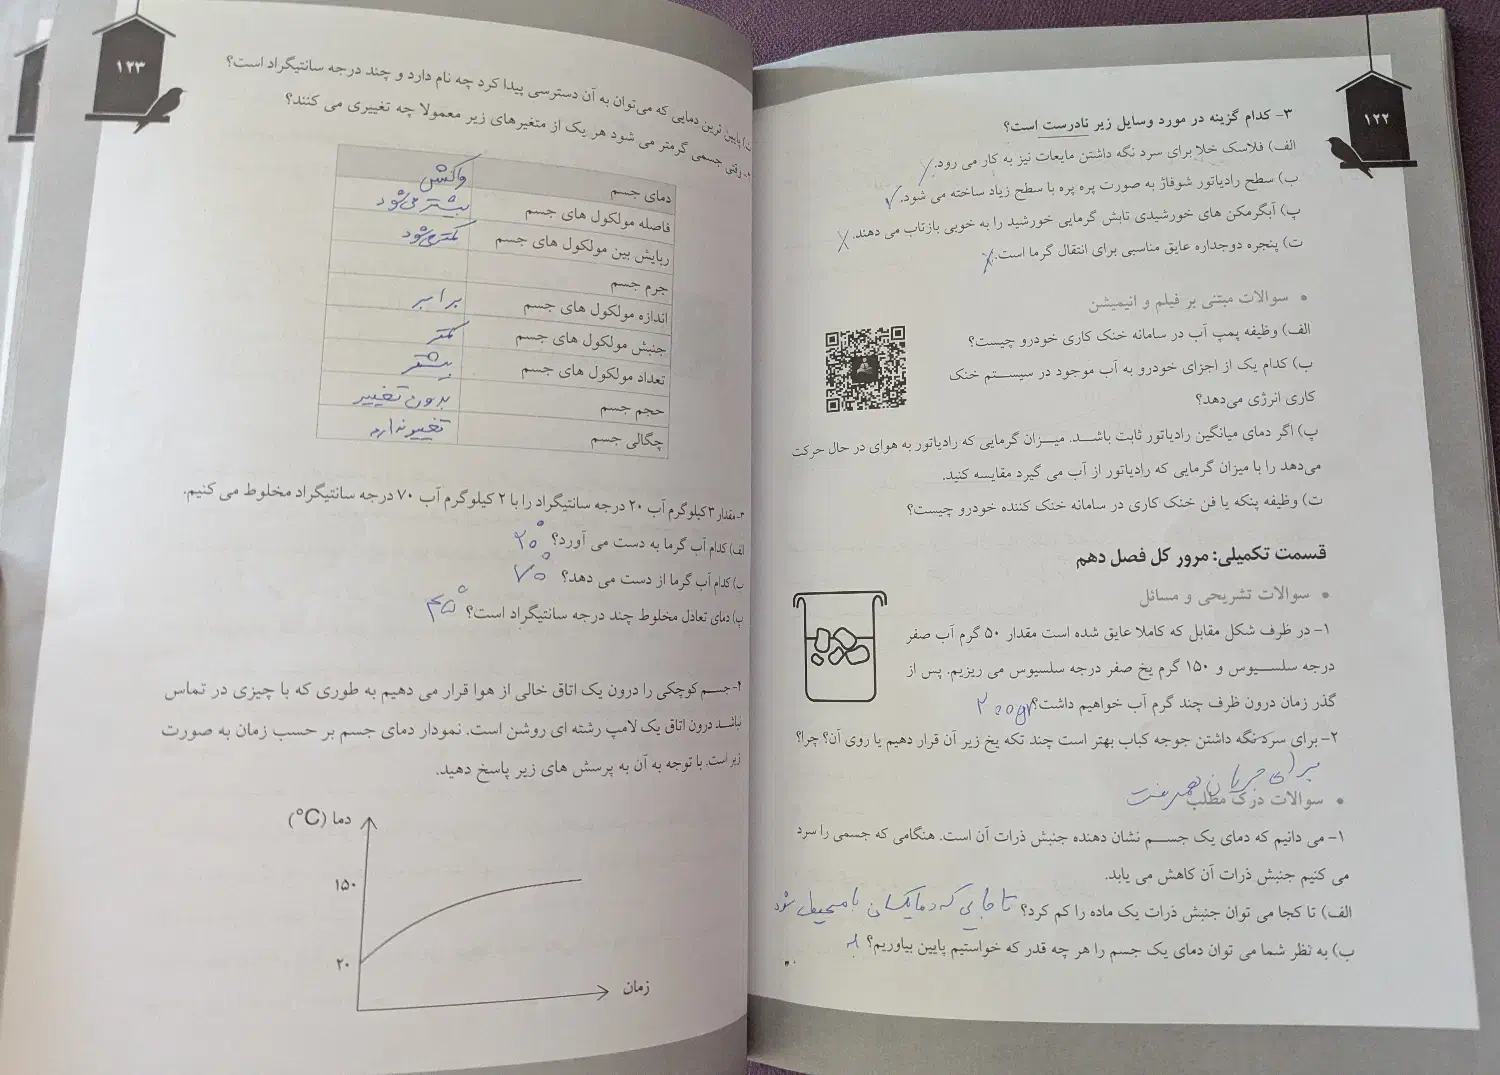 ۱۲۲
۳- کدام گزینه در مورد وسایل زیر نادرست است؟
الف) فلاسک خلا برای سرد نگه داشتن مایعات نیز به کار می رود.
ب) سطح رادیاتور شوفاژ به صورت پره پره با سطح زیاد ساخته می شود.
پ) آبگرمکن های خورشیدی تابش گرمایی خورشید را به خوبی بازتاب می دهند.
ت) پنجره دوجداره عایق مناسبی برای انتقال گرما است.
• سوالات مبتنی بر فیلم و انیمیشن
الف) وظیفه پمپ آب در سامانه خنک کاری خودرو چیست؟
ب) کدام یک از اجزای خودرو به آب موجود در سیستم خنک
کاری انرژی می‌دهد؟
پ) اگر دمای میانگین رادیاتور ثابت باشد. میزان گرمایی که رادیاتور به هوای در حال حرکت
می‌دهد را با میزان گرمایی که رادیاتور از آب می گیرد مقایسه کنید.
ت) وظیفه پنکه یا فن خنک کاری در سامانه خنک کننده خودرو چیست؟
قسمت تکمیلی: مرور کل فصل دهم
• سوالات تشریحی و مسائل
۱- در ظرف شکل مقابل که کاملا عایق شده است مقدار ۵۰ گرم آب صفر
درجه سلسیوس و ۱۵۰ گرم یخ صفر درجه سلسیوس می ریزیم. پس از
گذر زمان درون ظرف چند گرم آب خواهیم داشت؟ ۲۰۰gr
۲- برای سرد نگه داشتن جوجه کباب بهتر است چند تکه یخ زیر آن قرار دهیم یا روی آن؟ چرا؟
برای جریان همرفت
• سوالات درک مطلب
۱- می دانیم که دمای یک جسم نشان دهنده جنبش ذرات آن است. هنگامی که جسمی را سرد
می کنیم جنبش ذرات آن کاهش می یابد.
الف) تا کجا می توان جنبش ذرات یک ماده را کم کرد؟ تا جایی که دما یکسان با محیط شود
ب) به نظر شما می توان دمای یک جسم را هر چه قدر که خواستیم پایین بیاوریم؟
۱۲۳
ت) پایین ترین دمایی که می‌توان به آن دسترسی پیدا کرد چه نام دارد و چند درجه سانتیگراد است؟
۲- وقتی جسمی گرمتر می شود هر یک از متغیرهای زیر معمولا چه تغییری می کنند؟
دمای جسم واکنش
فاصله مولکول های جسم بیشتر می‌شود
ربایش بین مولکول های جسم کمتر می‌شود
جرم جسم
اندازه مولکول های جسم برابر
جنبش مولکول های جسم کمتر
تعداد مولکول های جسم بیشتر
حجم جسم بدون تغییر
چگالی جسم تغییر ندارد
۳- مقدار ۳ کیلوگرم آب ۲۰ درجه سانتیگراد را با ۲ کیلوگرم آب ۷۰ درجه سانتیگراد مخلوط می کنیم.
الف) کدام آب گرما به دست می آورد؟ ۲۰°
ب) کدام آب گرما از دست می دهد؟ ۷۰°
پ) دمای تعادل مخلوط چند درجه سانتیگراد است؟ ۴۵°
۴- جسم کوچکی را درون یک اتاق خالی از هوا قرار می دهیم به طوری که با چیزی در تماس
نباشد درون اتاق یک لامپ رشته ای روشن است. نمودار دمای جسم بر حسب زمان به صورت
زیر است. با توجه به آن به پرسش های زیر پاسخ دهید.
دما (°C)
۱۵۰
۲۰
زمان